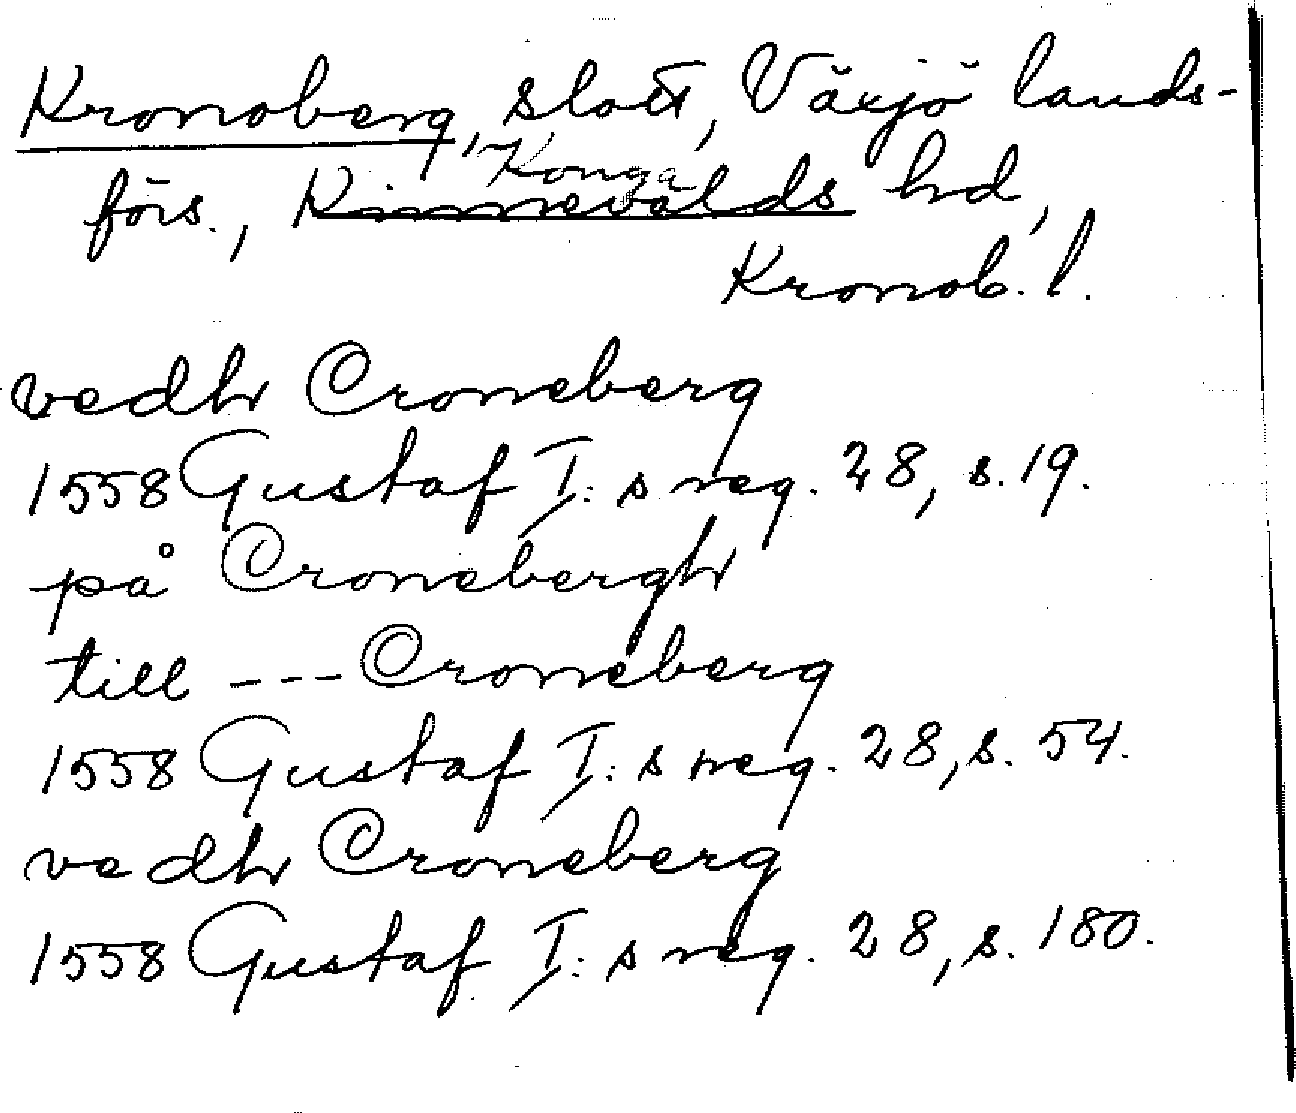 Kronoberg, slott, Växjö lands-
förs., Kinnevalds hd,
Konga
Kronob. l.
vedh Croneberg
1558 Gustaf I:s reg. 28, s. 19.
på Cronebergh
till --- Croneberg
1558 Gustaf I:s reg. 28, s. 54.
vedh Croneberg
1558 Gustaf I:s reg. 28, s. 180.